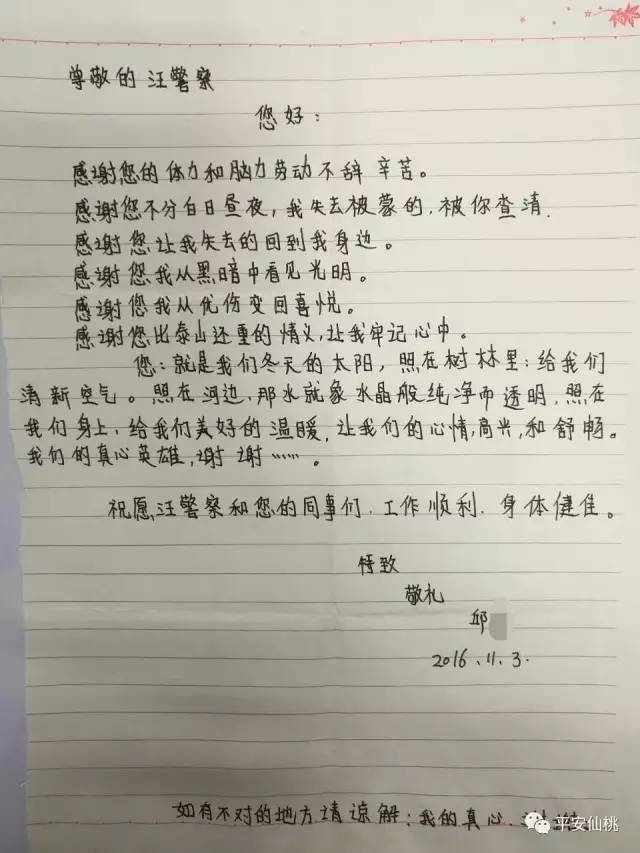 尊敬的汪警察
您好：
感谢您的体力和脑力劳动不辞辛苦。
感谢您不分白日昼夜，我失去被蒙的，被你查清.
感谢您让我失去的回到我身边。
感谢您我从黑暗中看见光明。
感谢您我从优伤变回喜悦。
感谢您比泰山还重的情义，让我牢记心中。
您：就是我们冬天的太阳，照在树林里：给我们
清新空气。照在河边，那水就象水晶般纯净而透明，照在
我们身上，给我们美好的温暖，让我们的心情，高兴，和舒畅。
我们的真心英雄，谢谢……。
祝愿汪警察和您的同事们，工作顺利，身体健佳。
特致
敬礼
邱
2016.11.3.
如有不对的地方请谅解：我的真心.
平安仙桃